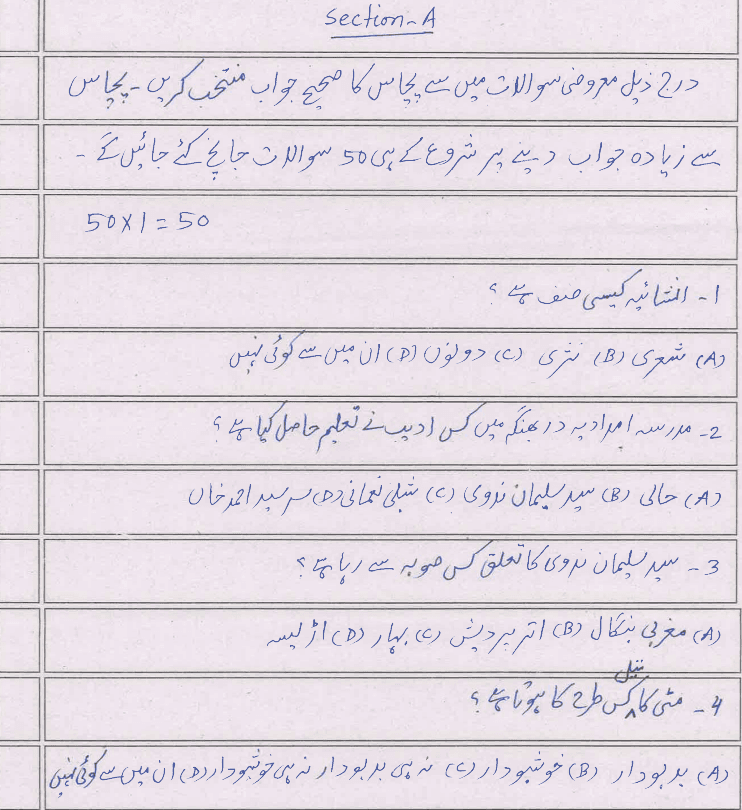 Section-A
درج ذیل معروضی سوالات میں سے پچاس کا صحیح جواب منتخب کریں ۔ پچاس
سے زیادہ جواب دینے پر شروع کے ہی 50 سوالات جانچے کئے جائیں گے ۔
50 X 1 = 50
1- انشائیہ کیسی صنف ہے ؟
(A) شعری (B) نثری (C) دونوں (D) ان میں سے کوئی نہیں
2- مدرسہ امدادیہ دربھنگہ میں کس ادیب نے تعلیم حاصل کیا ہے ؟
(A) حالی (B) سید سلیمان ندوی (C) شبلی نعمانی (D) سر سید احمد خاں
3- سید سلیمان ندوی کا تعلق کس صوبہ سے رہا ہے ؟
(A) مغربی بنگال (B) اتر پردیش (C) بہار (D) اڑیسہ
4- مٹی کا تیل کس طرح کا ہوتا ہے ؟
(A) بدبودار (B) خوشبودار (C) نہ ہی بدبودار نہ ہی خوشبودار (D) ان میں سے کوئی نہیں